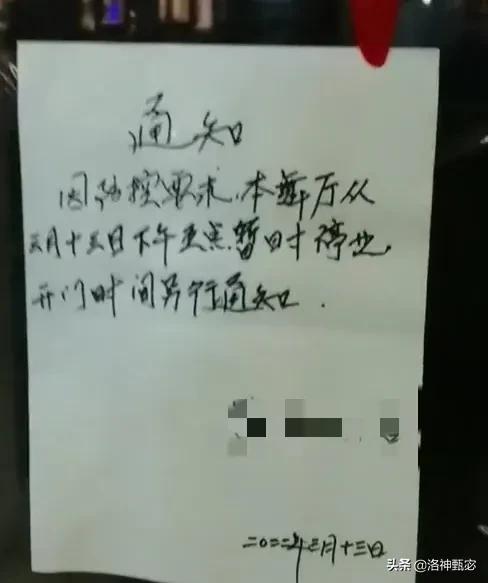 通知
因防控要求,本舞厅从
三月十三日下午五点暂时停业,
开门时间另行通知.
二〇二二年三月十三日
头条 @洛神甄宓